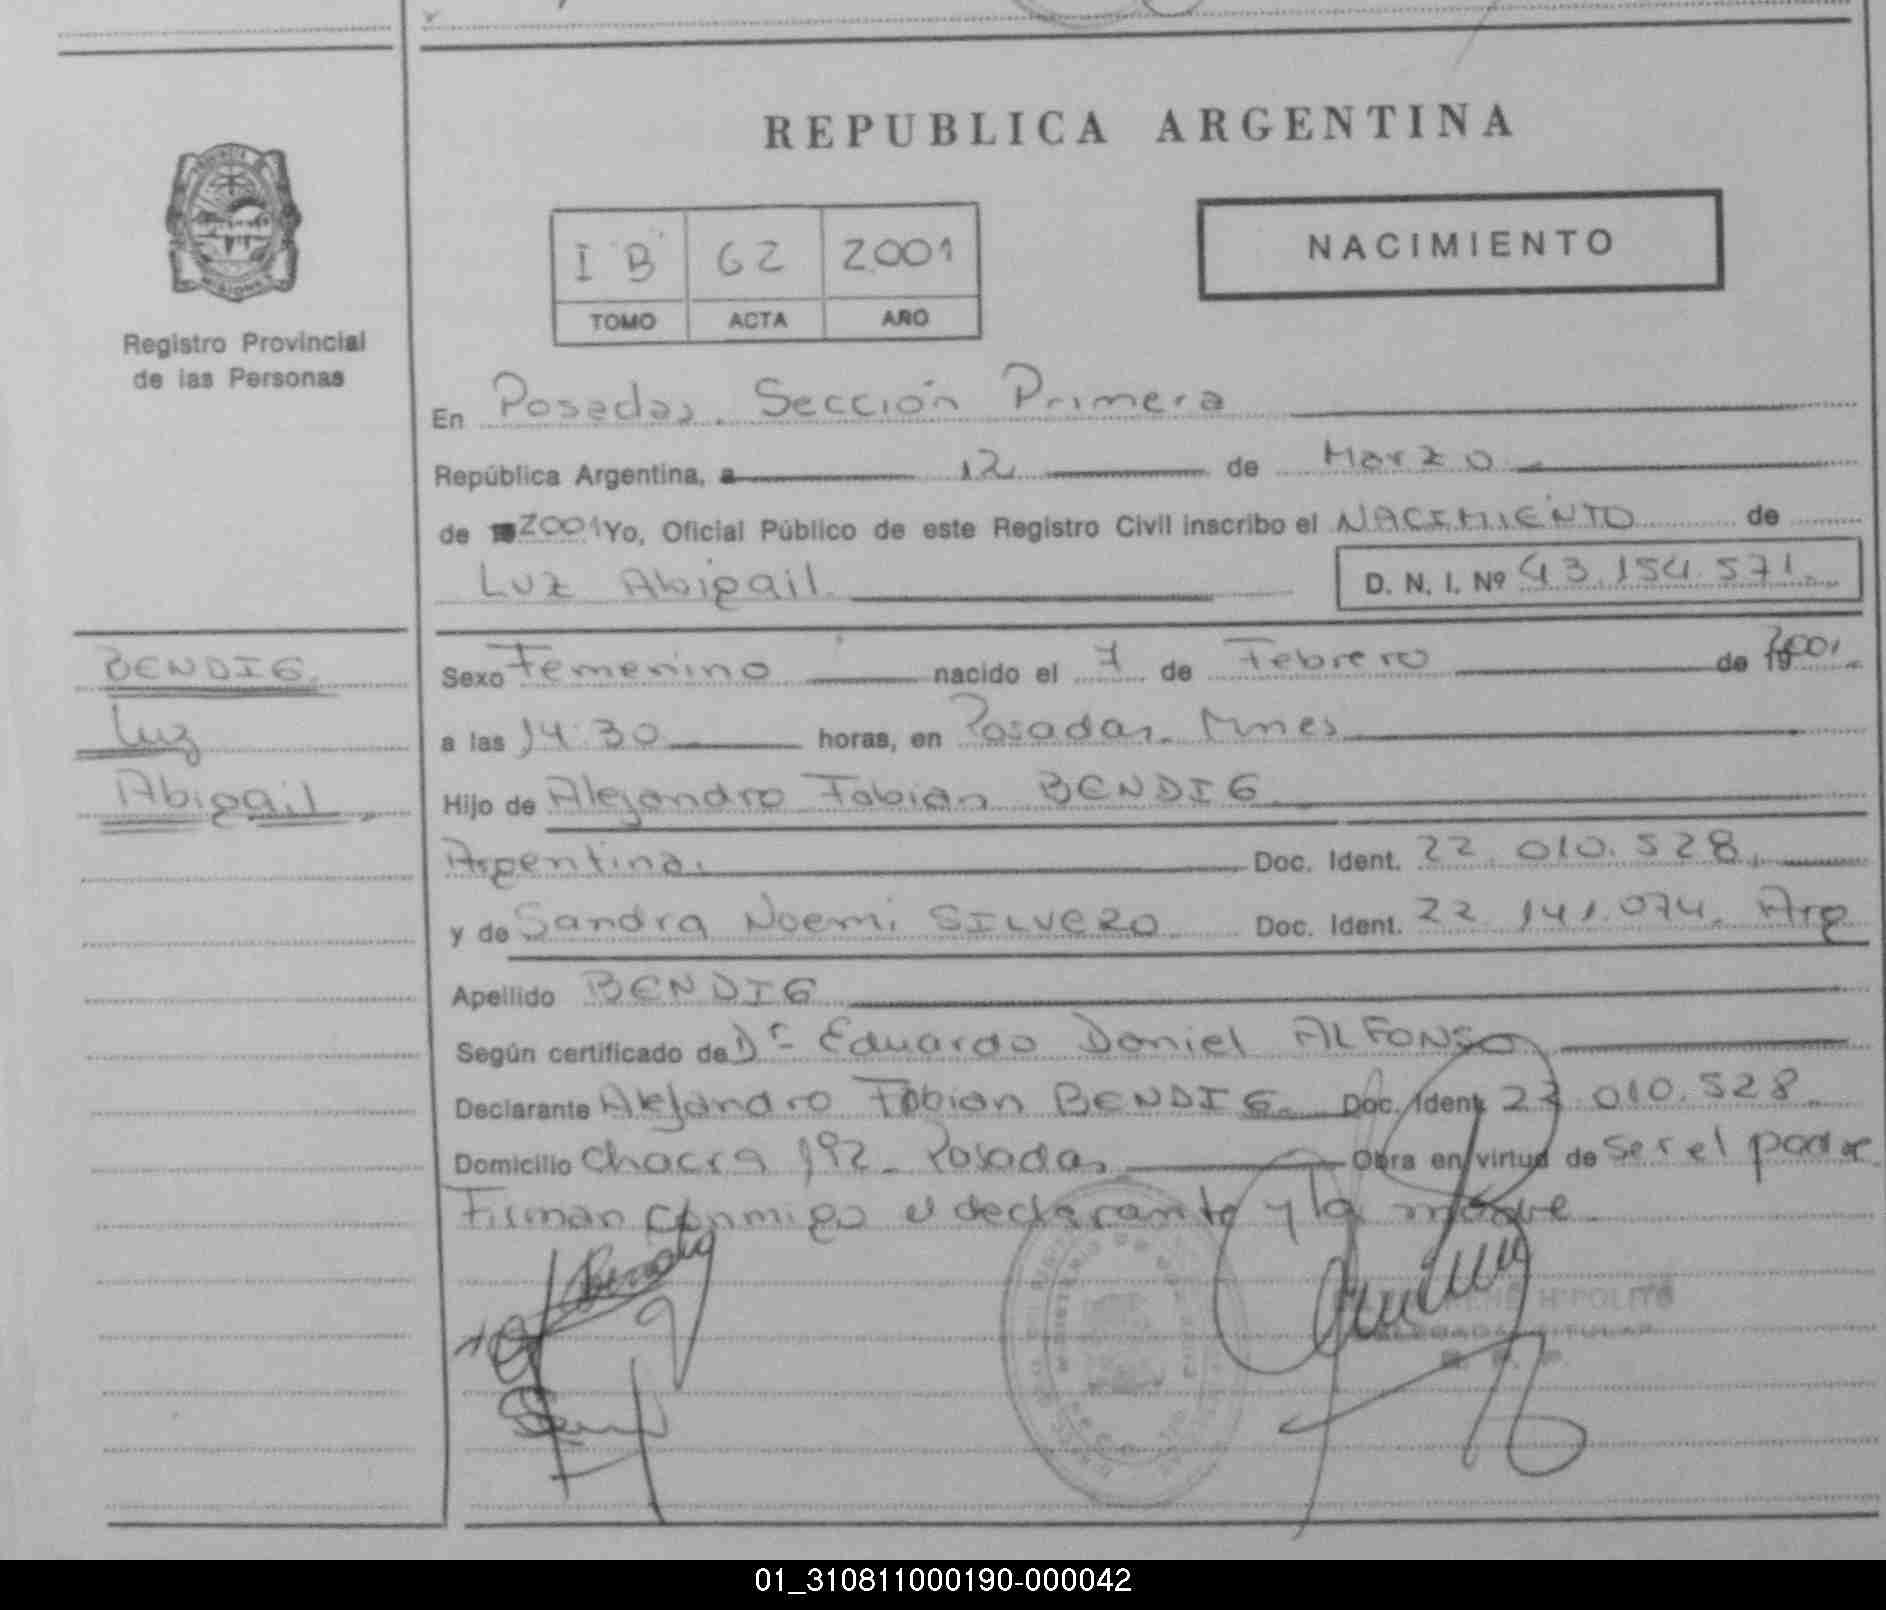 REPUBLICA ARGENTINA
NACIMIENTO
I "B" 62 2001
TOMO ACTA AÑO
Registro Provincial
de las Personas
En Posadas. Sección Primera
República Argentina, a 12 de Marzo
de 2001 Yo, Oficial Público de este Registro Civil inscribo el NACIMIENTO de
Luz Abigail
D. N. I. Nº 43.154.571.
BENDIG
Luz
Abigail
Sexo Femenino nacido el 7 de Febrero de 19 2001.
a las 14:30 horas, en Posadas. Mnes
Hijo de Alejandro Fabian BENDIG
Argentina. Doc. Ident. 22.010.528
y de Sandra Noemi SILVERO Doc. Ident. 22.141.074. Arg
Apellido BENDIG
Según certificado de Dr Eduardo Daniel ALFONSO
Declarante Alejandro Fabian BENDIG. Doc. Ident 22 010.528
Domicilio Chacra 192 - Posadas Obra en virtud de ser el padre
Firman conmigo el declarante y la madre
HIPOLITO
TITULAR
01_310811000190-000042